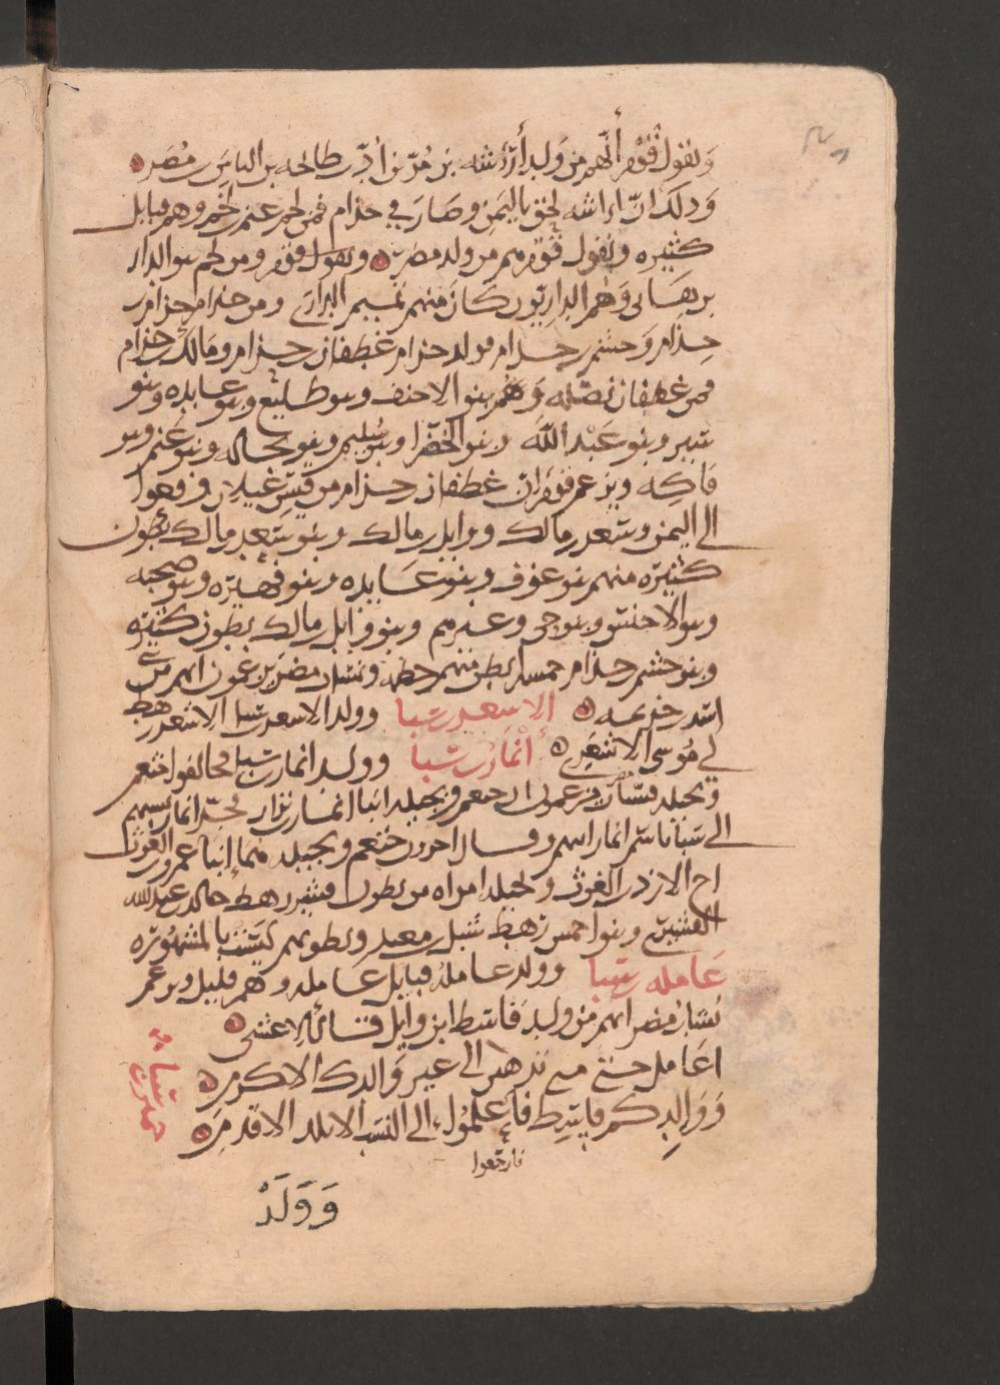 ويقول قوم أنهم من ولد أراشه بن مر بن أد بن طابخه بن الياس بن مضر
وذلك ان اراشه لحق باليمن وصار في جذام فمن لخم عنم لخم وهم قبايل
كثيره ويقول قوم هم من ولد مضر ويقول قوم ومن لخم بنو الدار
بن هانى وهم الداريون كان منهم تميم الدارى ومن جذام حزام بن
جذام وحشم بن جذام فولد حزام غطفان بن حزام ومالك بن حزام
فمن غطفان نضله وهم بنو الاحنف وبنو طليع وبنو عايده وبنو
شبير وبنو عبد الله وبنو الخضرا وبنو سليم وبنو بحاله وبنو غنم وبنو
فاكه ويزعم قوم ان غطفان بن حزام من قيس عيلان وقعوا
الى اليمن وسعد بن مالك ووايل بن مالك وبنو سعد بن مالك بطون
كثيره منهم بنو عوف وبنو عايده وبنو فهيره وبنو صحبه
وبنو الاخنس وبنو حى وعبرهم وبنو وايل بن مالك بطون كثيره
وبنو حشم بن جذام خمسه ابطن منهم حطمه ونساب مضر يزعمون انهم من بنى
اسد بن خزيمه الاشعر بن سبا وولد الاشعر بن سبا الاشعر رهط
ابي موسى الاشعرى أنمار بن سبا وولد انمار بن سبا فحالفوا خثعم
وبجيله فنساب مضر يزعمون ان خثعم وبجيله ابنا انمار بن نزار فحد انمار بنسبهم
الى سبا باسم انمار اسم وقال اخرون خثعم وبجيله هما ابنا عمرو بن الغوث
اخ الازد بن الغوث وبجيله امراه من بطون قسير رهط خالد بن عبد الله
القسرى وبنو احمس رهط شبل بن معبد وبطونهم ليست بالمشهوره
عامله بن سبا وولد عامله قبايل عامله وهم قليل ويزعم
نساب مضر انهم من ولد قاسط ابن وايل قال الاعشى
اعامل حتى متى تذهبين الى غير والدك الاكرم
ووالدكم قاسط فاعلموا الى النسب الاتلد الاقدم
فارجعوا
حمير بن سبا
وَوَلَدْ